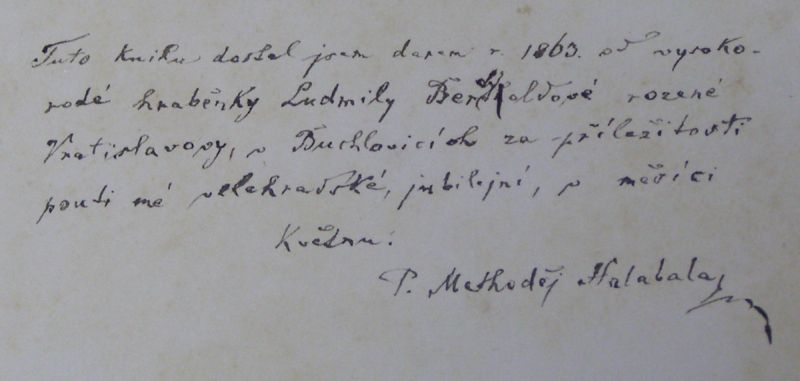 Tuto knihu dostal jsem darem r. 1863. od vysoko-
rodé hraběnky Ludmily Berchtoldové rozené
Vratislavovy, v Buchlovicích za příležitosti
pouti mé velehradské, jubilejní, v měsíci
Květnu.
P. Methoděj Halabala